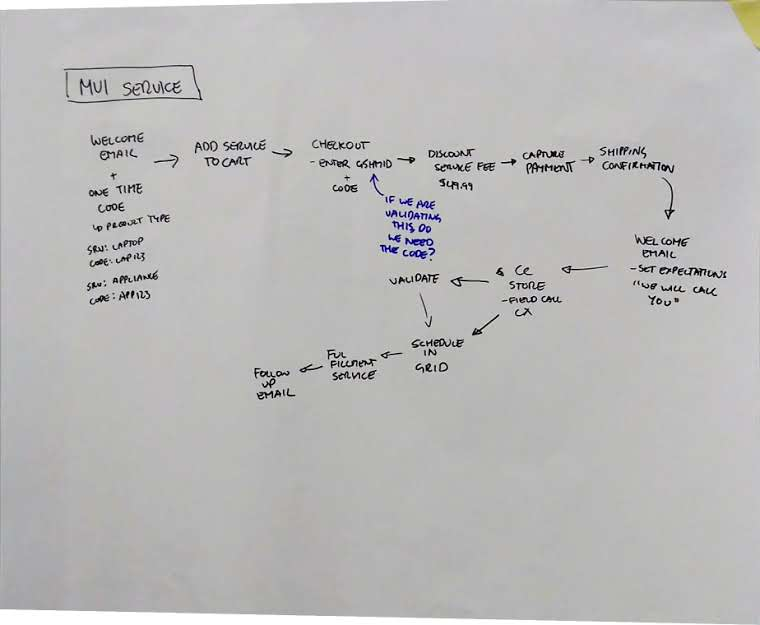 MVI SERVICE
WELCOME
EMAIL
+
ONE TIME
CODE
↳ PRODUCT TYPE
SRV: LAPTOP
CODE: LAP123
SRV: APPLIANCE
CODE: APP123
ADD SERVICE
TO CART
CHECKOUT
- ENTER GSHMID
+
CODE
IF WE ARE
VALIDATING
THIS DO
WE NEED
THE CODE?
DISCOUNT
SERVICE FEE
$49.99
CAPTURE
PAYMENT
SHIPPING
CONFIRMATION
WELCOME
EMAIL
- SET EXPECTATIONS
"WE WILL CALL
YOU"
& CC
STORE
- FIELD CALL
CX
VALIDATE
SCHEDULE
IN
GRID
FUL
FILLMENT
SERVICE
FOLLOW
UP
EMAIL